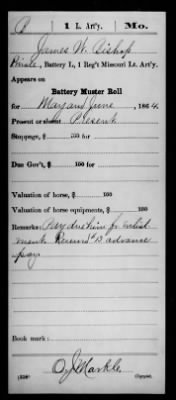 B | 1 L. Art'y. | Mo.
James W. Bishop
Private, Battery L, 1 Reg't Missouri Lt. Art'y.
Appears on
Battery Muster Roll
for May and June, 1864.
Present or absent Present
Stoppage, $ 100 for
Due Gov't, $ 100 for
Valuation of horse, $ 100
Valuation of horse equipments, $ 100
Remarks: Pay due him fr enlist
ment Received $13 advance
pay
Book mark:
O. J. Markle
(358) Copyist.